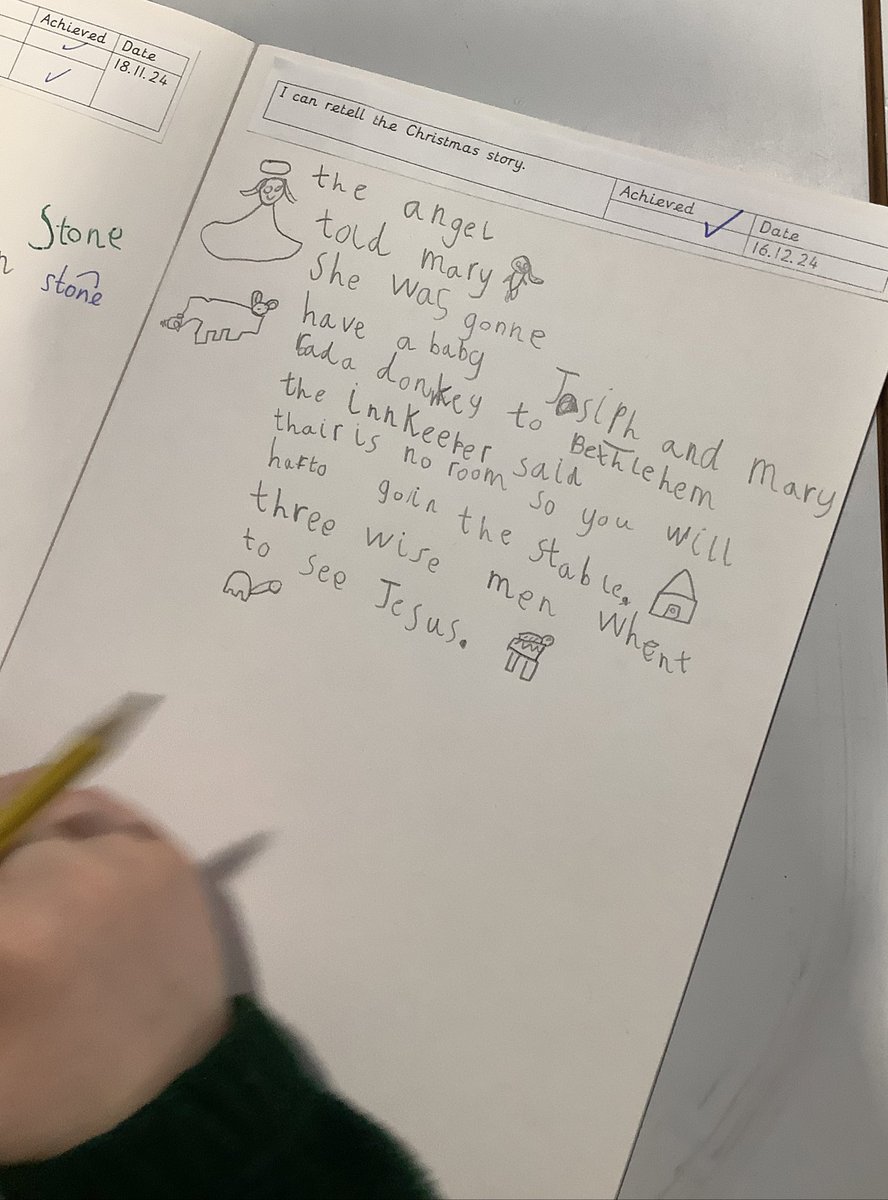 Achieved
Date
18.11.24
Stone
stone
n
I can retell the Christmas story.
Achieved
Date
16.12.24
the angel
told mary
She was gonne
have a baby Josiph and mary
rada donkey to Bethlehem
the innkeeper said
thair is no room so you will
hafto goin the stable.
three wise men Whent
to see Jesus.